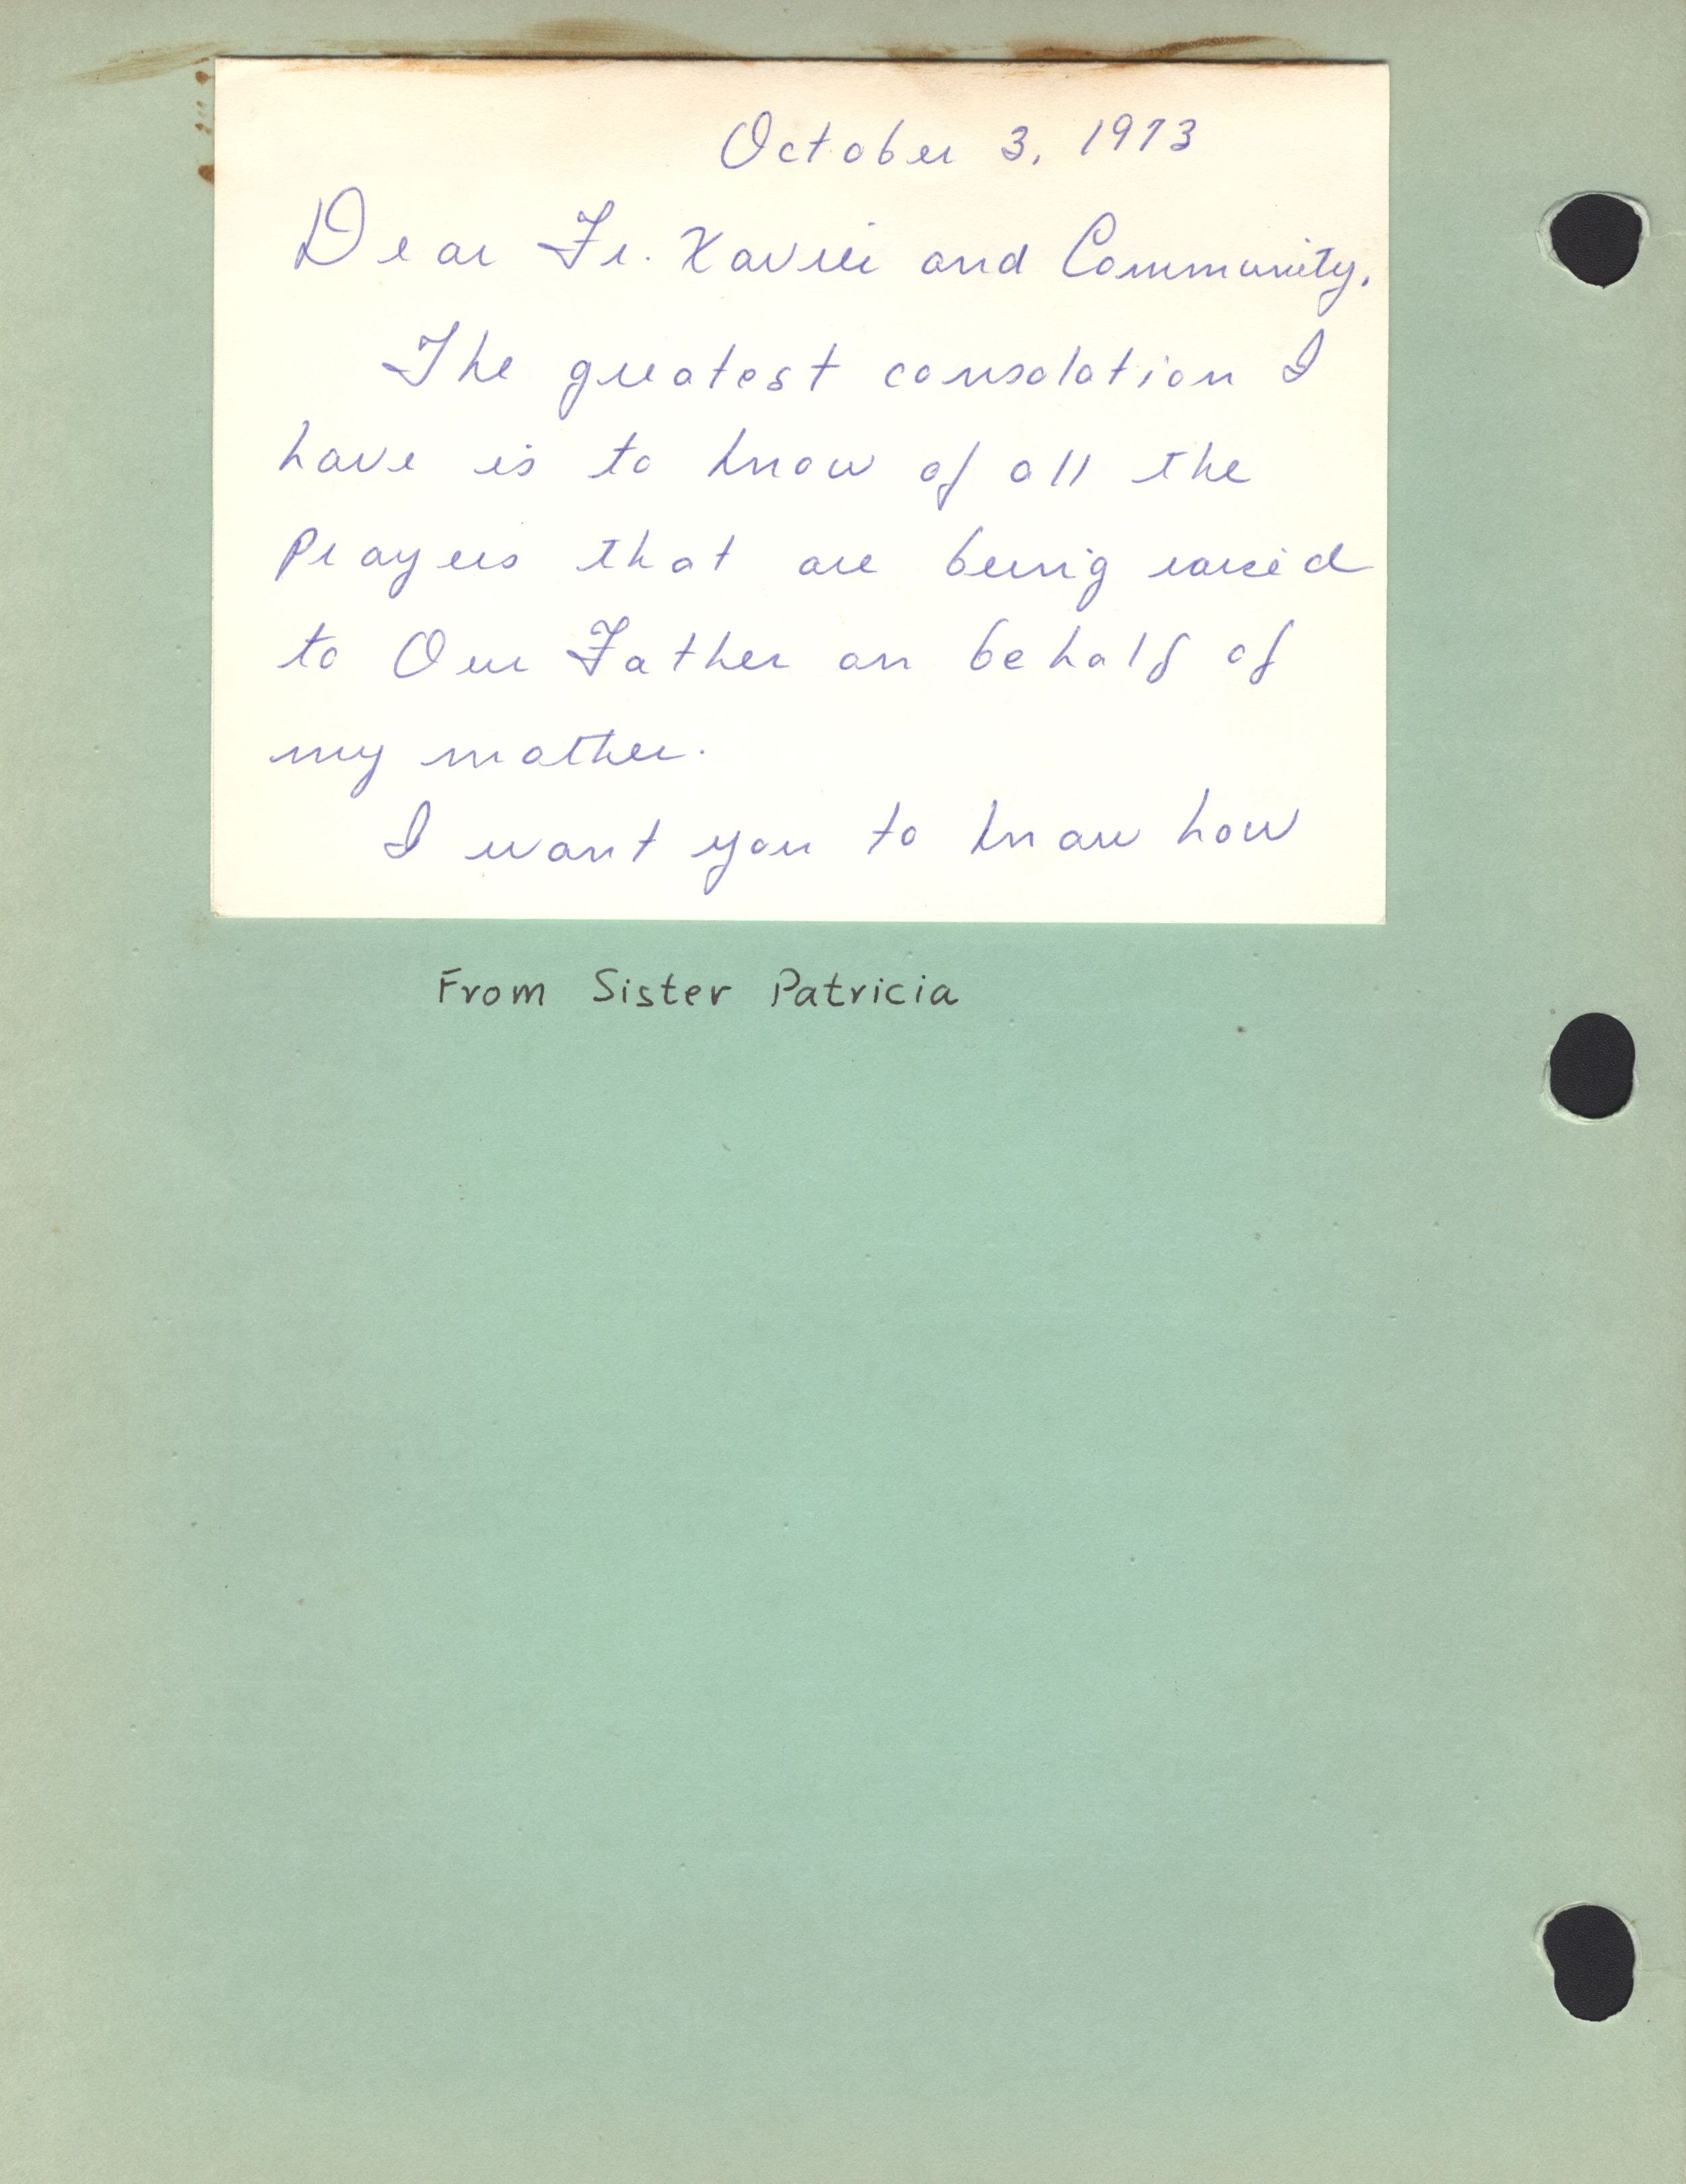 October 3, 1973
Dear Fr. Xavier and Community,
The greatest consolation I
have is to know of all the
prayers that are being raised
to Our Father on behalf of
my mother.
I want you to know how
From Sister Patricia